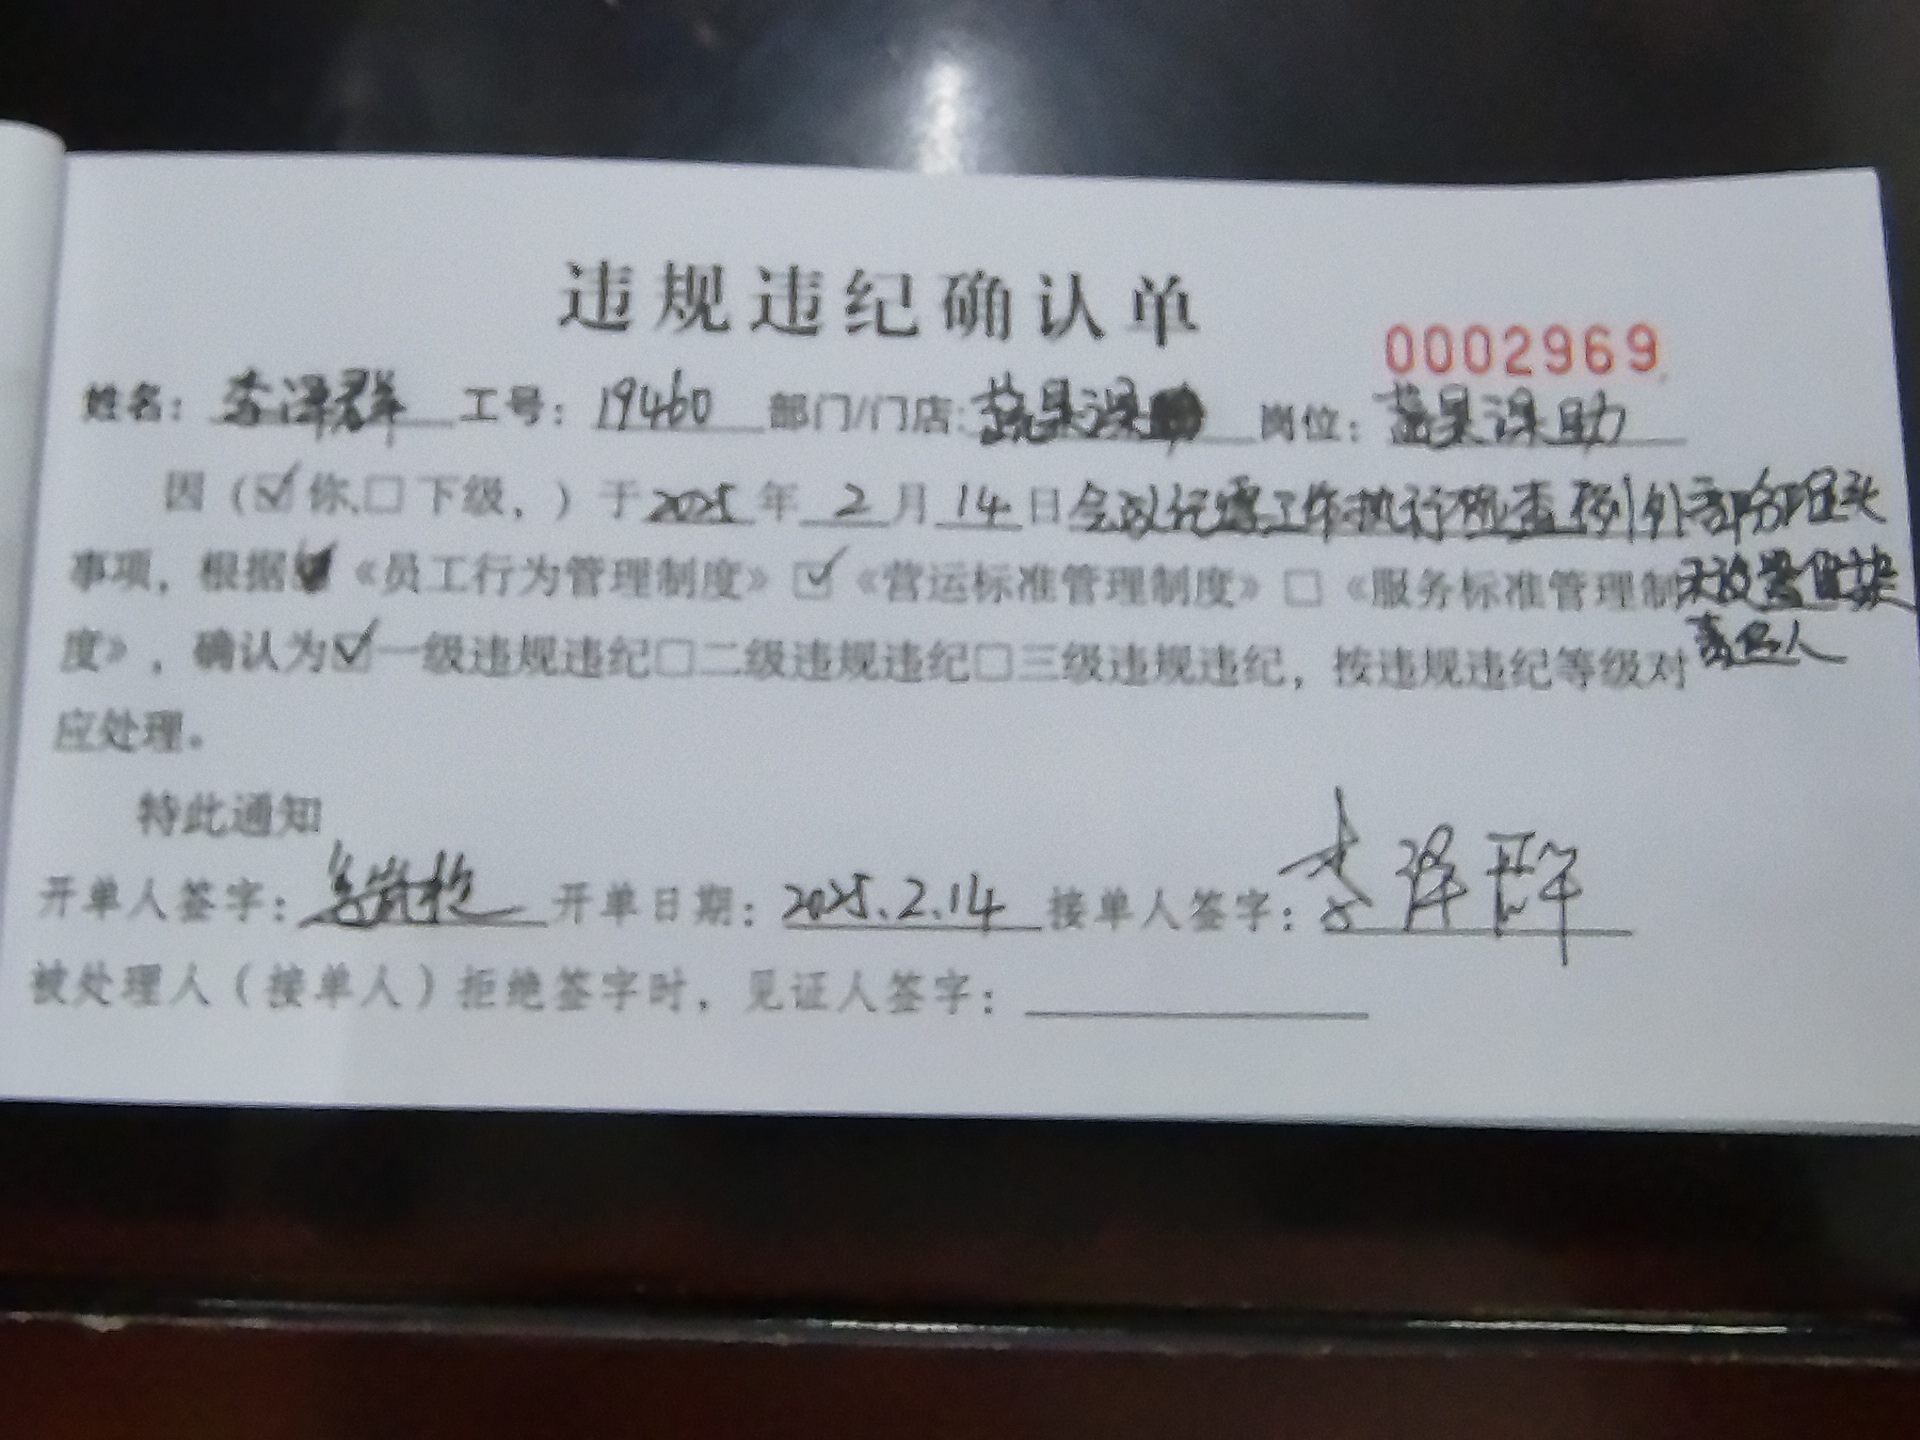 违规违纪确认单
0002969
姓名：李泽群 工号：19460 部门/门店：蔬果课 岗位：蔬果课助
因（☑你、□下级，）于2025年2月14日会议纪要工作执行检查例外部分堆头
事项，根据 《员工行为管理制度》☑《营运标准管理制度》□《服务标准管理制 未放置
度》，确认为☑一级违规违纪□二级违规违纪□三级违规违纪，按违规违纪等级对 责任人
应处理。
特此通知
开单人签字： 开单日期：2025.2.14 接单人签字：李泽群
被处理人（接单人）拒绝签字时，见证人签字：